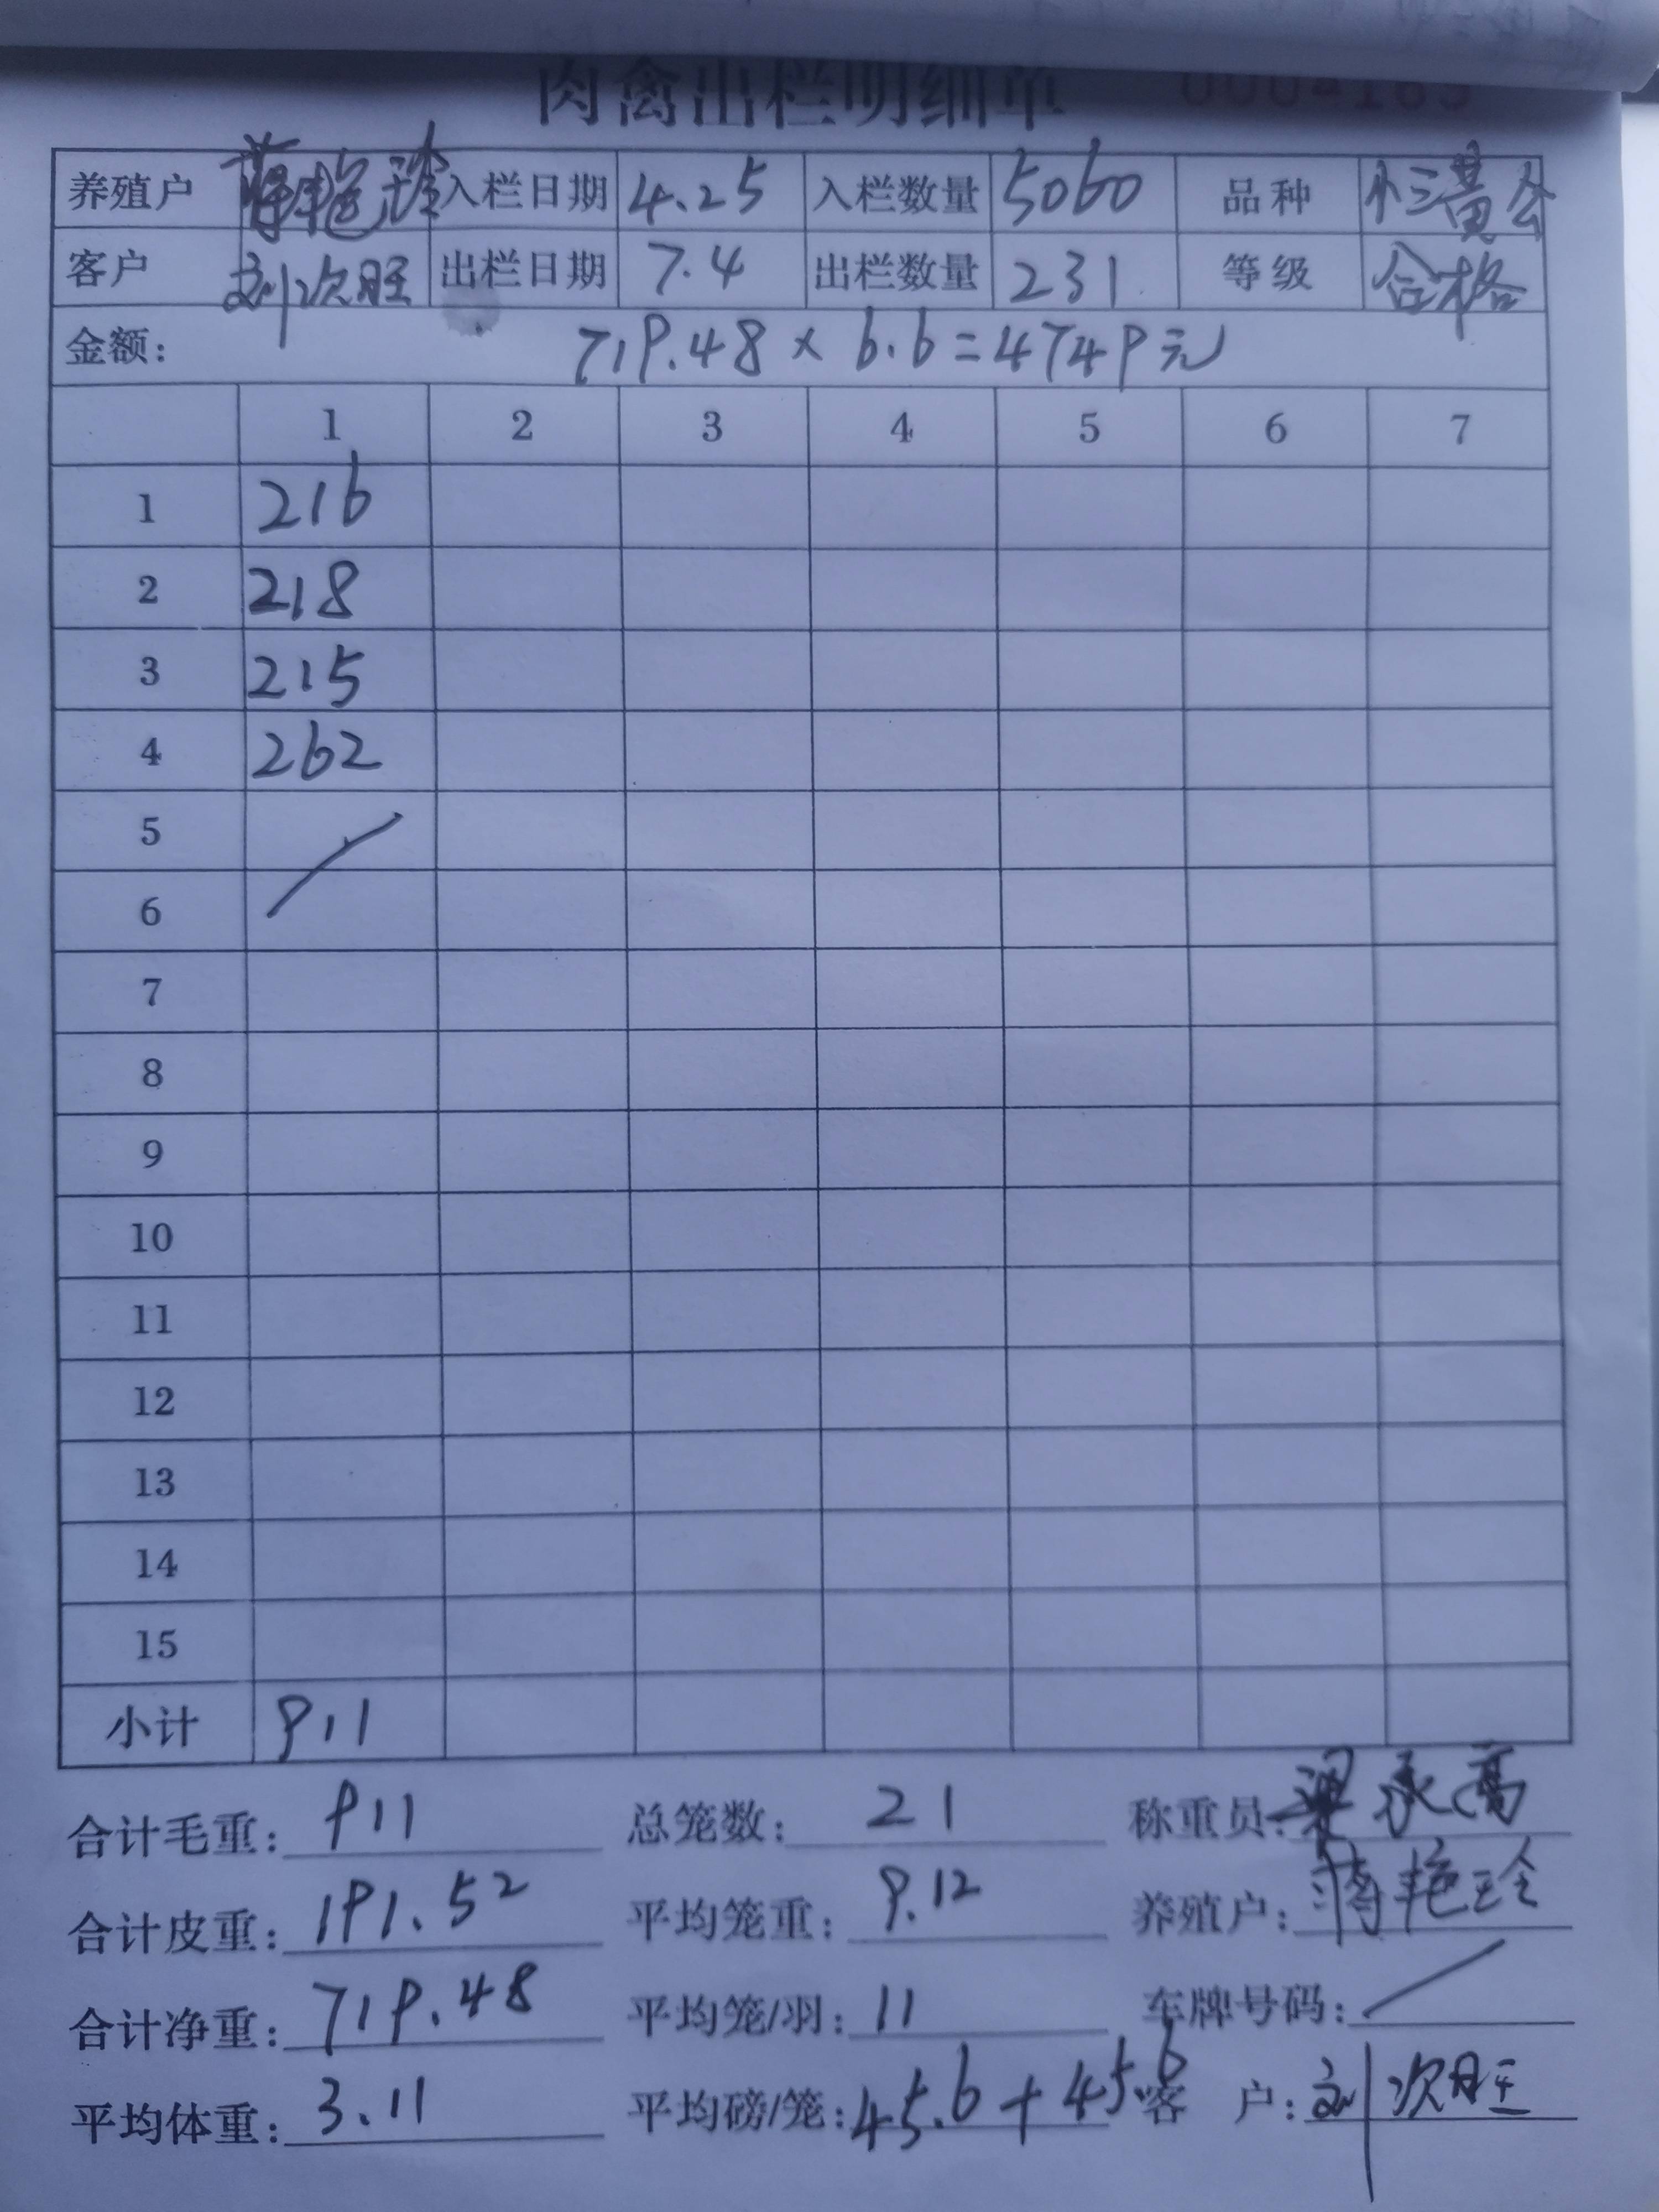 肉禽出栏明细单 0004163
养殖户 蒋艳玲 入栏日期 4.25 入栏数量 5060 品种 小三黄公
客户 刘次旺 出栏日期 7.4 出栏数量 231 等级 合格
金额: 719.48 × 6.6=4749元
1 2 3 4 5 6 7
1 216
2 218
3 215
4 262
5
6
7
8
9
10
11
12
13
14
15
小计 911
合计毛重: 911 总笼数: 21 称重员: 梁永高
合计皮重: 191.52 平均笼重: 9.12 养殖户: 蒋艳玲
合计净重: 719.48 平均笼/羽: 11 车牌号码:
平均体重: 3.11 平均磅/笼: 45.6+45.6 客户: 刘次旺